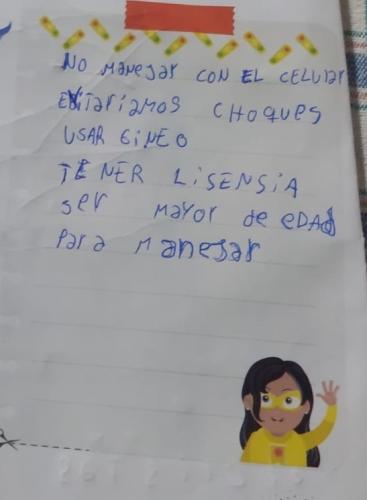 NO MANESAR CON EL CELULAR
EVITARIAMOS CHOQUES
USAR GINEO
TENER LISENSIA
SER MAYOR DE EDAD
PARA MANESAR